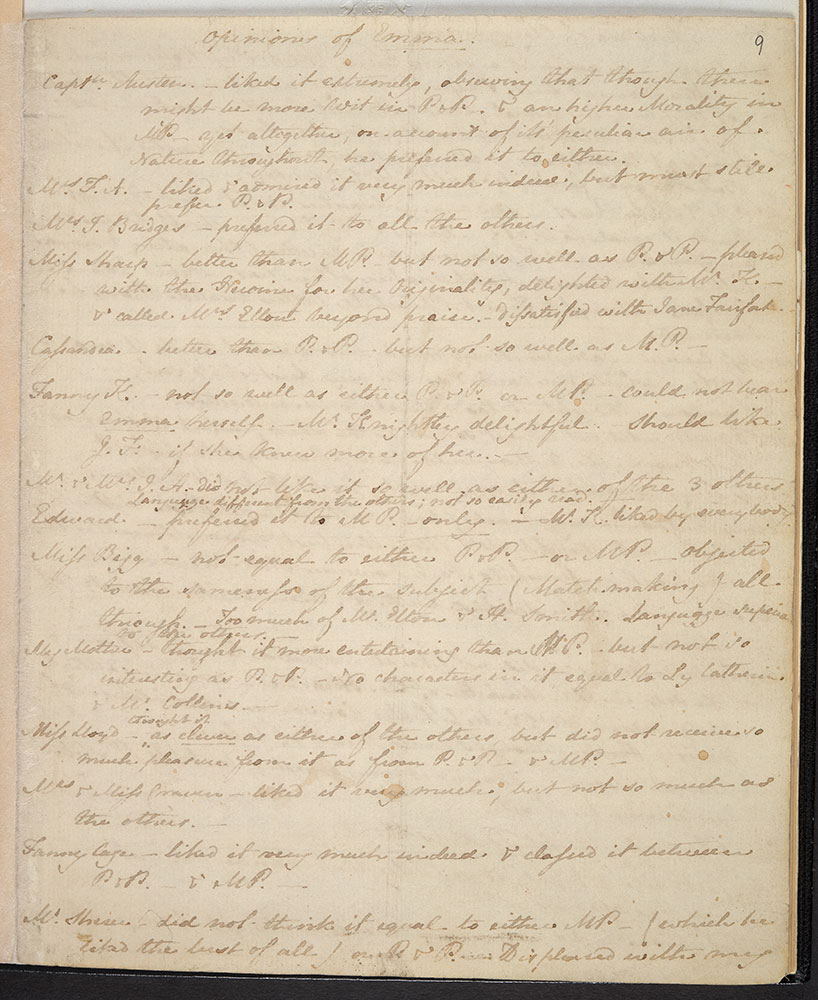 9
Opinions of Emma.
Captn. Austen. - liked it extremely, observing that though there
might be more Wit in P & P. & an higher Morality in
MP - yet altogether, on account of it's peculiar air of
Nature throughout, he preferred it to either.
Mrs F. A. - liked & admired it very much indeed, but must still
prefer P. & P.
Mrs J. Bridges - preferred it to all the others.
Miss Sharp - better than MP. - but not so well as P. & P. - pleased
with the Heroine for her Originality, delighted with Mr. K -
& called Mrs Elton beyond praise. - dissatisfied with Jane Fairfax.
Cassandra - better than P. & P. - but not so well as M. P. -
Fanny K. - not so well as either P. & P. or MP. - could not bear
Emma herself. - Mr. Knightley delightful. - Should like
J. F. - if she knew more of her. -
Mr. & Mrs. J. A. - did not like it so well as either of the 3 others
Language different from the others; not so easily read. -
Edward - preferred it to MP. - only. - Mr. K. liked by every body
Miss Bigg - not equal to either P. & P. - or MP. - objected
to the sameness of the subject (Match-making) all
through. - Too much of Mr. Elton & H. Smith. Language superior
to the others. -
My Mother - thought it more entertaining than MP. - but not so
interesting as P. & P. - No characters in it equal to Ly Catherine
& Mr. Collins. -
Miss Lloyd - thought it as clever as either of the others, but did not receive so
much pleasure from it as from P. & P - & MP. -
Mrs & Miss Craven - liked it very much, but not so much as
the others. -
Fanny Cage - liked it very much indeed & classed it between
P. & P. - & MP. -
Mr. Sherer - did not think it equal to either MP - (which he
liked the best of all) or P & P. - Displeased with my